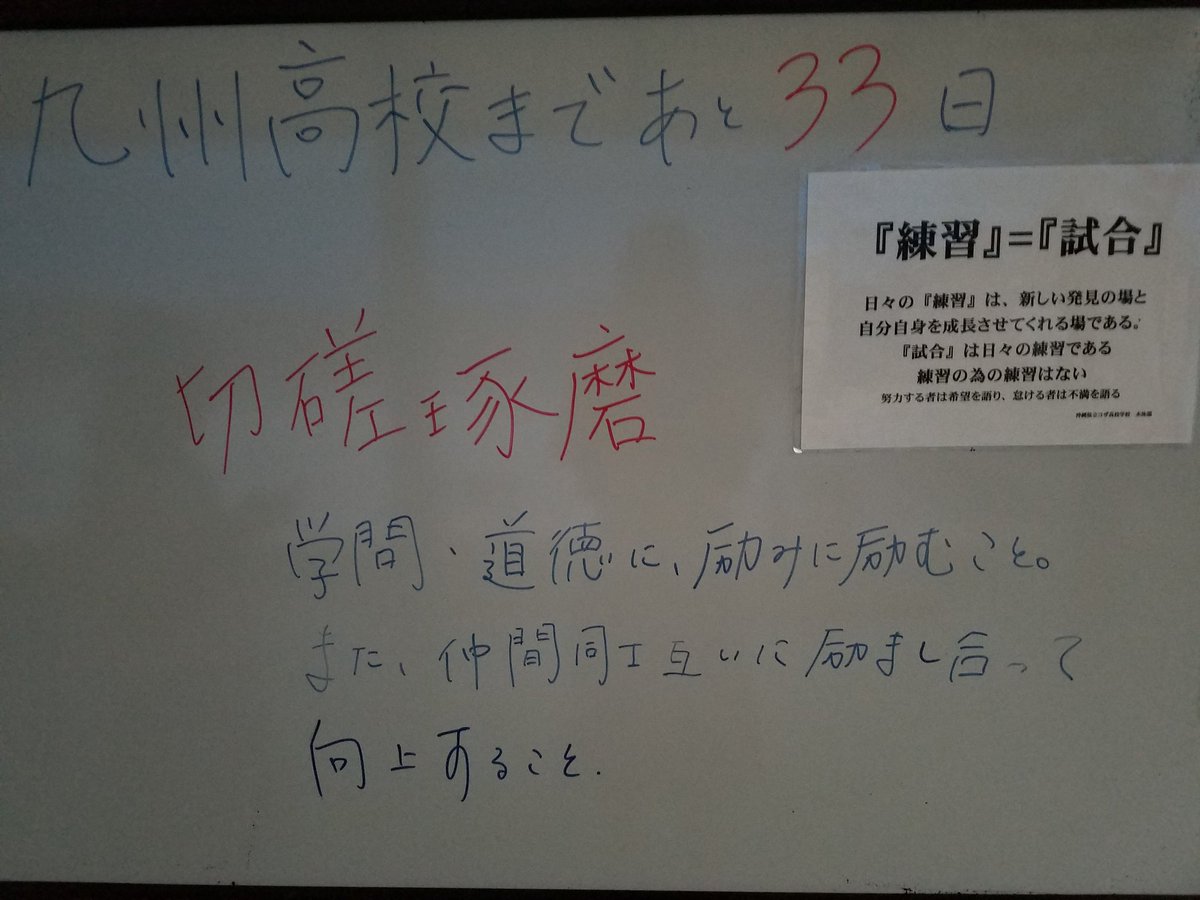 九州高校まであと33日
『練習』=『試合』
日々の『練習』は、新しい発見の場と
自分自身を成長させてくれる場である。
『試合』は日々の練習である
練習の為の練習はない
努力する者は希望を語り、怠ける者は不満を語る
沖縄県立コザ高校学校 水泳部
切磋琢磨
学問、道徳に、励みに励むこと。
また、仲間同士互いに励まし合って
向上すること.